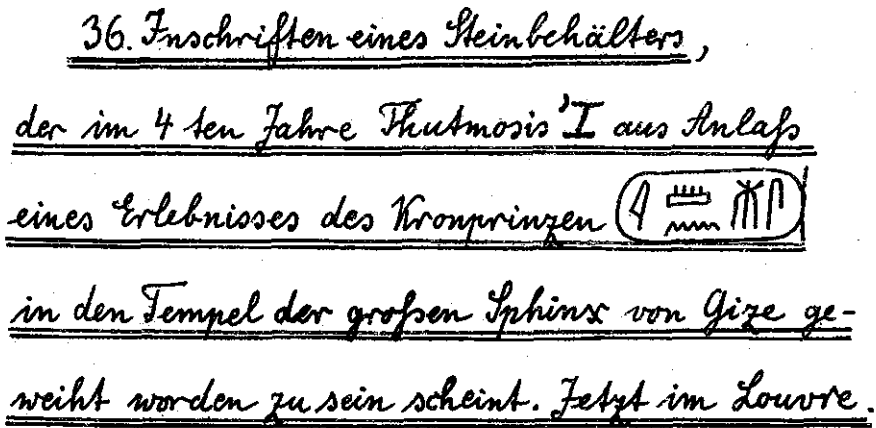 36. Inschriften eines Steinbehälters,
der im 4 ten Jahre Thutmosis' I aus Anlaß
eines Erlebnisses des Kronprinzen (𓇋 𓏠𓈖 𓄟𓋴)
in den Tempel der großen Sphinx von Gize ge-
weiht worden zu sein scheint. Jetzt im Louvre.